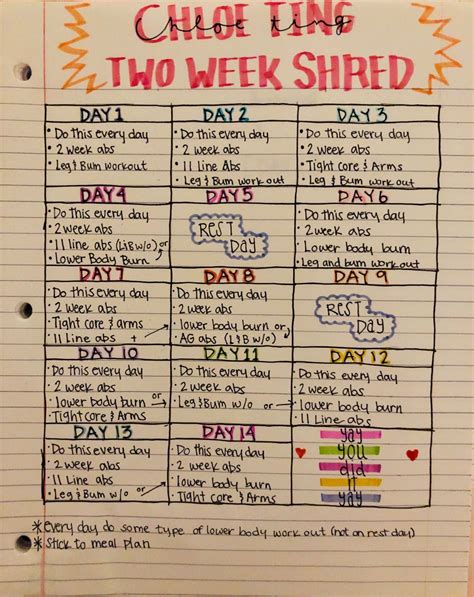 CHLOE TING
Chloe ting
TWO WEEK SHRED
DAY 1
• Do this every day
• 2 week abs
• Leg & Bum workout
DAY 2
• Do this every day
• 2 week abs
• 11 Line Abs
• Leg & Bum work out
DAY 3
• Do this every day
• 2 week abs
• Tight core & Arms
• Leg & Bum work out
DAY 4
• Do this every day
• 2 week abs
• 11 line abs (L&B w/o) or
• Lower Body Burn
DAY 5
REST
DAY
DAY 6
• Do this every day
• 2 week abs
• Lower body burn
• Leg and bum work out
DAY 7
• Do this every day
• 2 week abs
• Tight core & arms
• 11 Line abs +
DAY 8
• Do this every day
• 2 week abs
• lower body burn or
• AG abs (L&B w/o)
DAY 9
REST
DAY
DAY 10
• Do this every day
• 2 week abs
• lower body burn or
• Tight core & Arms
DAY 11
• Do this every day
• 2 week abs
• Leg & Bum w/o or
DAY 12
• Do this every day
• 2 week abs
• lower body burn
• 11 Line-abs
DAY 13
• Do this every day
• 2 week abs
• 11 line abs
• Leg & Bum w/o or
DAY 14
• Do this every day
• 2 week abs
• lower body burn
• Tight core & Arms
yay
you
did
it
yay
* every day do some type of lower body work out (not on rest day)
* Stick to meal plan